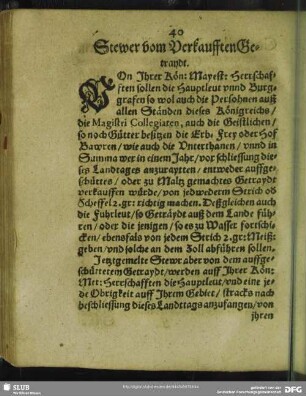 40
Stewer vom Verkaufften Ge-
traydt.
VOn Ihrer Kön: Mayest: Herrschaf-
fften sollen die Hauptleut vnnd Burg-
grafen so wol auch die Persohnen auß
allen Ständen dieses Königreichs/
die Magistri Collegiaten, auch die Geistlichen/
so noch Gütter besitzen die Erb- Frey oder Hof
Bawren/ wie auch die Vnterthanen/ vnnd in
Summa wer in einem Jahr/ vor schliessung die-
ses Landtages anzuraytten/ entweder auffge-
schüttes/ oder zu Maltz gemachtes Getraydt
verkauffen würde/ von jedwederm Strich od
Scheffel 2. gr: richtig machen. Deßgleichen auch
die Fuhrleut/ so Getraydt auß dem Lande füh-
ren/ oder die jenigen/ so es zu Wasser fortschi-
cken/ ebensfals von jedem Strich 2. gr: Meiß:
geben/ vnd solche an dem Zoll abführen sollen.
Jetztgemelte Stewr aber von dem auffge-
schüttetem Getraydt/ werden auff Ihrer Kön:
May: Herrschafften die Hauptleut/ vnd eine je-
de Obrigkeit auff Ihrem Gebiet/ stracks nach
beschliessung dieses Landttags anzufangen/ von
ihren
SLUB
DFG